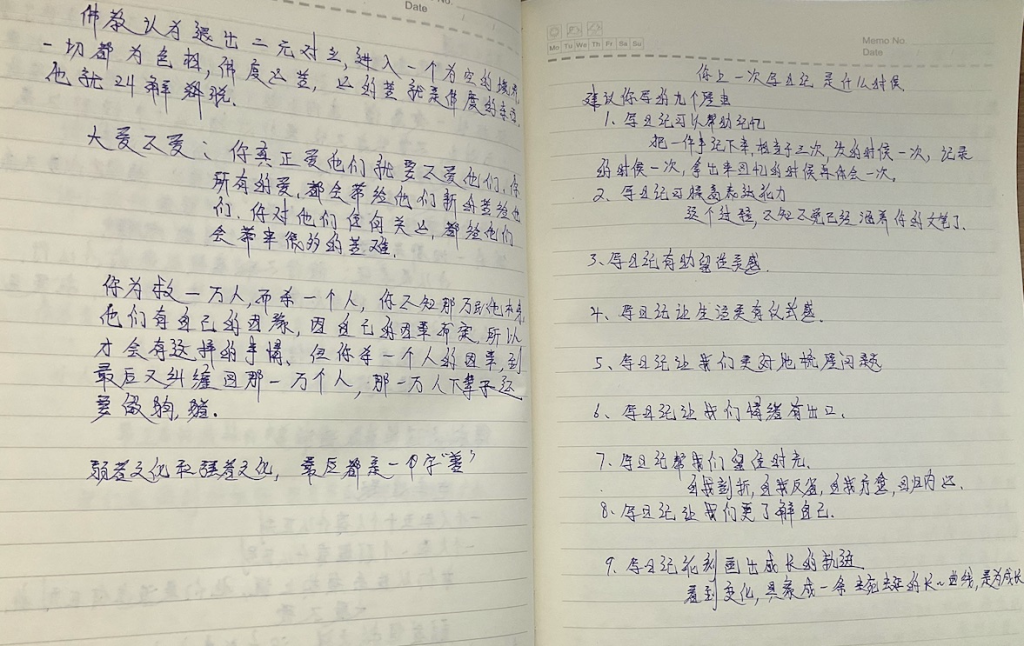 Date
佛教认为退出二元对立,进入一个为空的境界,
一切都为色相,佛度众苦,众的苦就是佛度的
他就 解脱。
大爱不爱:你真正爱他们就要不爱他们,你
所有的爱,都会带给他们新的苦给他
们,你对他们任何关心,都给他们
会带来很多的苦难。
你为救一万人,而杀一个人,你不知那万
他们有自己的因缘,因自己的因果而定,所以
才会有这样的事情、但你杀一个人的因果,到
最后又纠缠回那一万个人,那一万人下辈子还
要做狗,猪.
弱者文化和强者文化,最后都是一个字“善”
Memo No.
Mo Tu We Th Fr Sa Su
Date
你上一次写日记是什么时候
建议你写的九个理由
1、写日记可以帮助记忆
把一件事记下来,相当于三次,发的时候一次,记录
的时候一次,拿出来回忆的时候再体会一次。
2、写日记可提高表达能力
这个过程,不知不觉已经涵养你的文笔了.
3、写日记有助留住灵感.
4、写日记让生活更有仪式感.
5、写日记让我们更好地梳理问题
6、写日记让我们情绪有出口.
7、写日记帮我们留住时光.
自我剖析,自我反省,自我疗愈,回归内心.
8、写日记让我们更了解自己.
9、写日记能刻画出成长的轨迹
看到变化,具象成一条 的长~曲线,是为成长